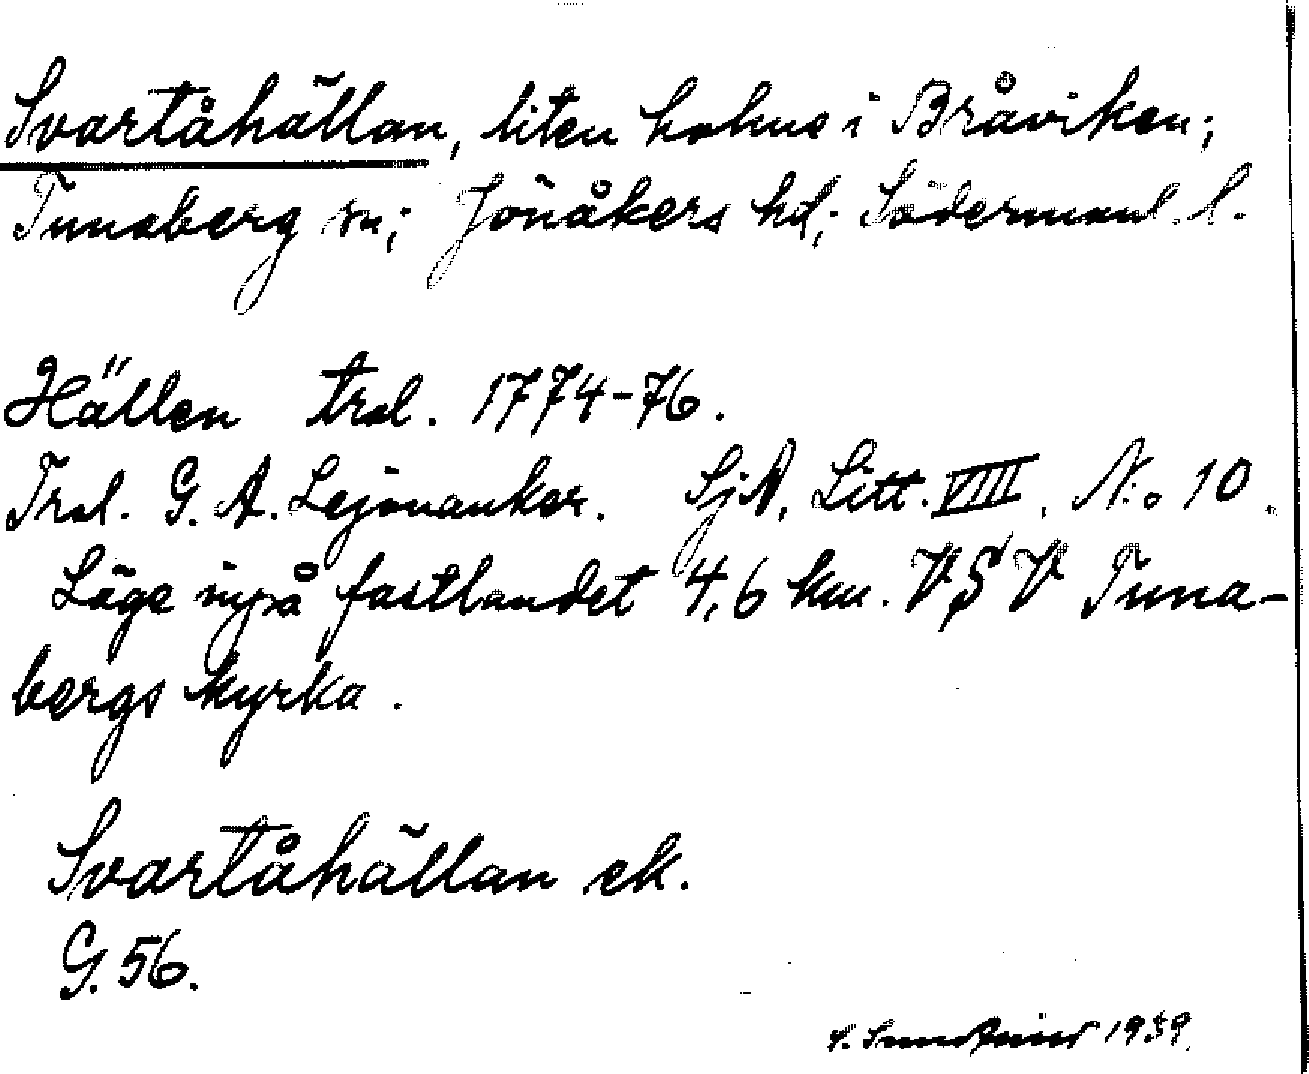 Svartåhällan, liten holme i Bråviken;
Tunaberg sn; Jönåkers hd; Södermanl. l.
Hällen trol. 1774-76.
Trol. G. A. Lejonanker. SjA, Litt. VIII, N:o 10.
Läge inpå fastlandet 4,6 km. VSV Tuna-
bergs kyrka.
Svartåhällan ek.
G. 56.
1939